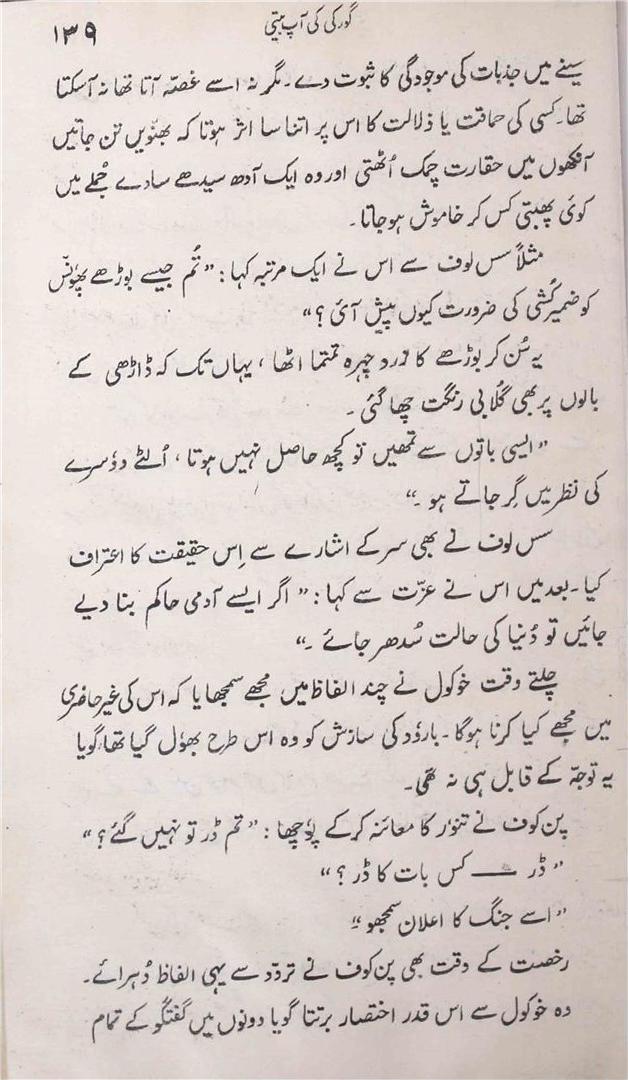 گورکی کی آپ بیتی
۱۳۹
سینے میں جذبات کی موجودگی کا ثبوت دے۔ مگر نہ اسے غصّہ آتا تھا نہ آسکتا
تھا۔ کسی کی حماقت یا ذلالت کا اس پر اتنا سا اثر ہوتا کہ بھنویں تن جاتیں
آنکھوں میں حقارت چمک اُٹھتی اور وہ ایک آدھ سیدھے سادے جُملے میں
کوئی پھبتی کس کر خاموش ہو جاتا۔
مثلاً سس لوف سے اس نے ایک مرتبہ کہا: ”تُم جیسے بوڑھے پھونس
کو ضمیر کُشی کی ضرورت کیوں پیش آئی؟“
یہ سُن کر بوڑھے کا زرد چہرہ تمتما اٹھا، یہاں تک کہ ڈاڑھی کے
بالوں پر بھی گلُابی رنگت چھا گئی۔
”ایسی باتوں سے تمھیں تو کچھ حاصل نہیں ہوتا، اُلٹے دوٗسرے
کی نظر میں گِر جاتے ہو۔“
سس لوف نے بھی سر کے اشارے سے اِس حقیقت کا اعتراف
کیا۔ بعد میں اس نے عزّت سے کہا: ”اگر ایسے آدمی حاکم بنا دیے
جائیں تو دُنیا کی حالت سُدھر جائے۔“
چلتے وقت خوکول نے چند الفاظ میں مجھے سمجھایا کہ اس کی غیر حاضری
میں مجھے کیا کرنا ہوگا۔ باروٗد کی سازش کو وہ اس طرح بھوٗل گیا تھا گویا
یہ توجہّ کے قابل ہی نہ تھی۔
پن کوف نے تنوٗر کا معائنہ کرکے پوٗچھا: ”تم ڈر تو نہیں گئے؟“
”ڈر —— کس بات کا ڈر؟“
”اسے جنگ کا اعلان سمجھو“
رخصت کے وقت بھی پن کوف نے تردّد سے یہی الفاظ دُہرائے۔
وہ خوکول سے اس قدر اختصار برتتا گویا دونوں میں گفتگو کے تمام